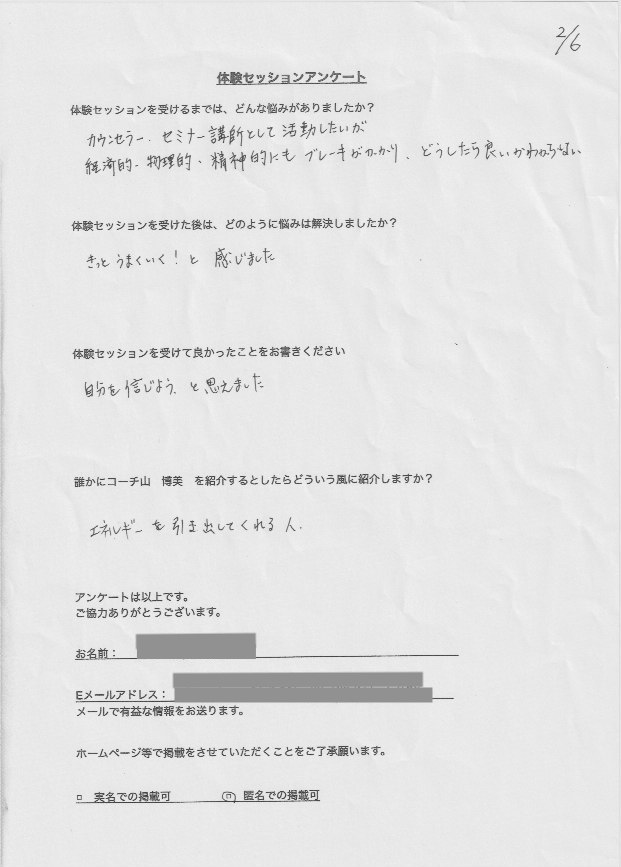 2/6
体験セッションアンケート
体験セッションを受けるまでは、どんな悩みがありましたか?
カウンセラー、セミナー講師として活動したいが
経済的、物理的、精神的にもブレーキがかかり、どうしたら良いかわからない
体験セッションを受けた後は、どのように悩みは解決しましたか?
きっとうまくいく!と 感じました
体験セッションを受けて良かったことをお書きください
自分を信じよう、と思えました
誰かにコーチ山 博美 を紹介するとしたらどういう風に紹介しますか?
エネルギーを引き出してくれる人。
アンケートは以上です。
ご協力ありがとうございます。
お名前:
Eメールアドレス:
メールで有益な情報をお送ります。
ホームページ等で掲載をさせていただくことをご了承願います。
□ 実名での掲載可 □ 匿名での掲載可